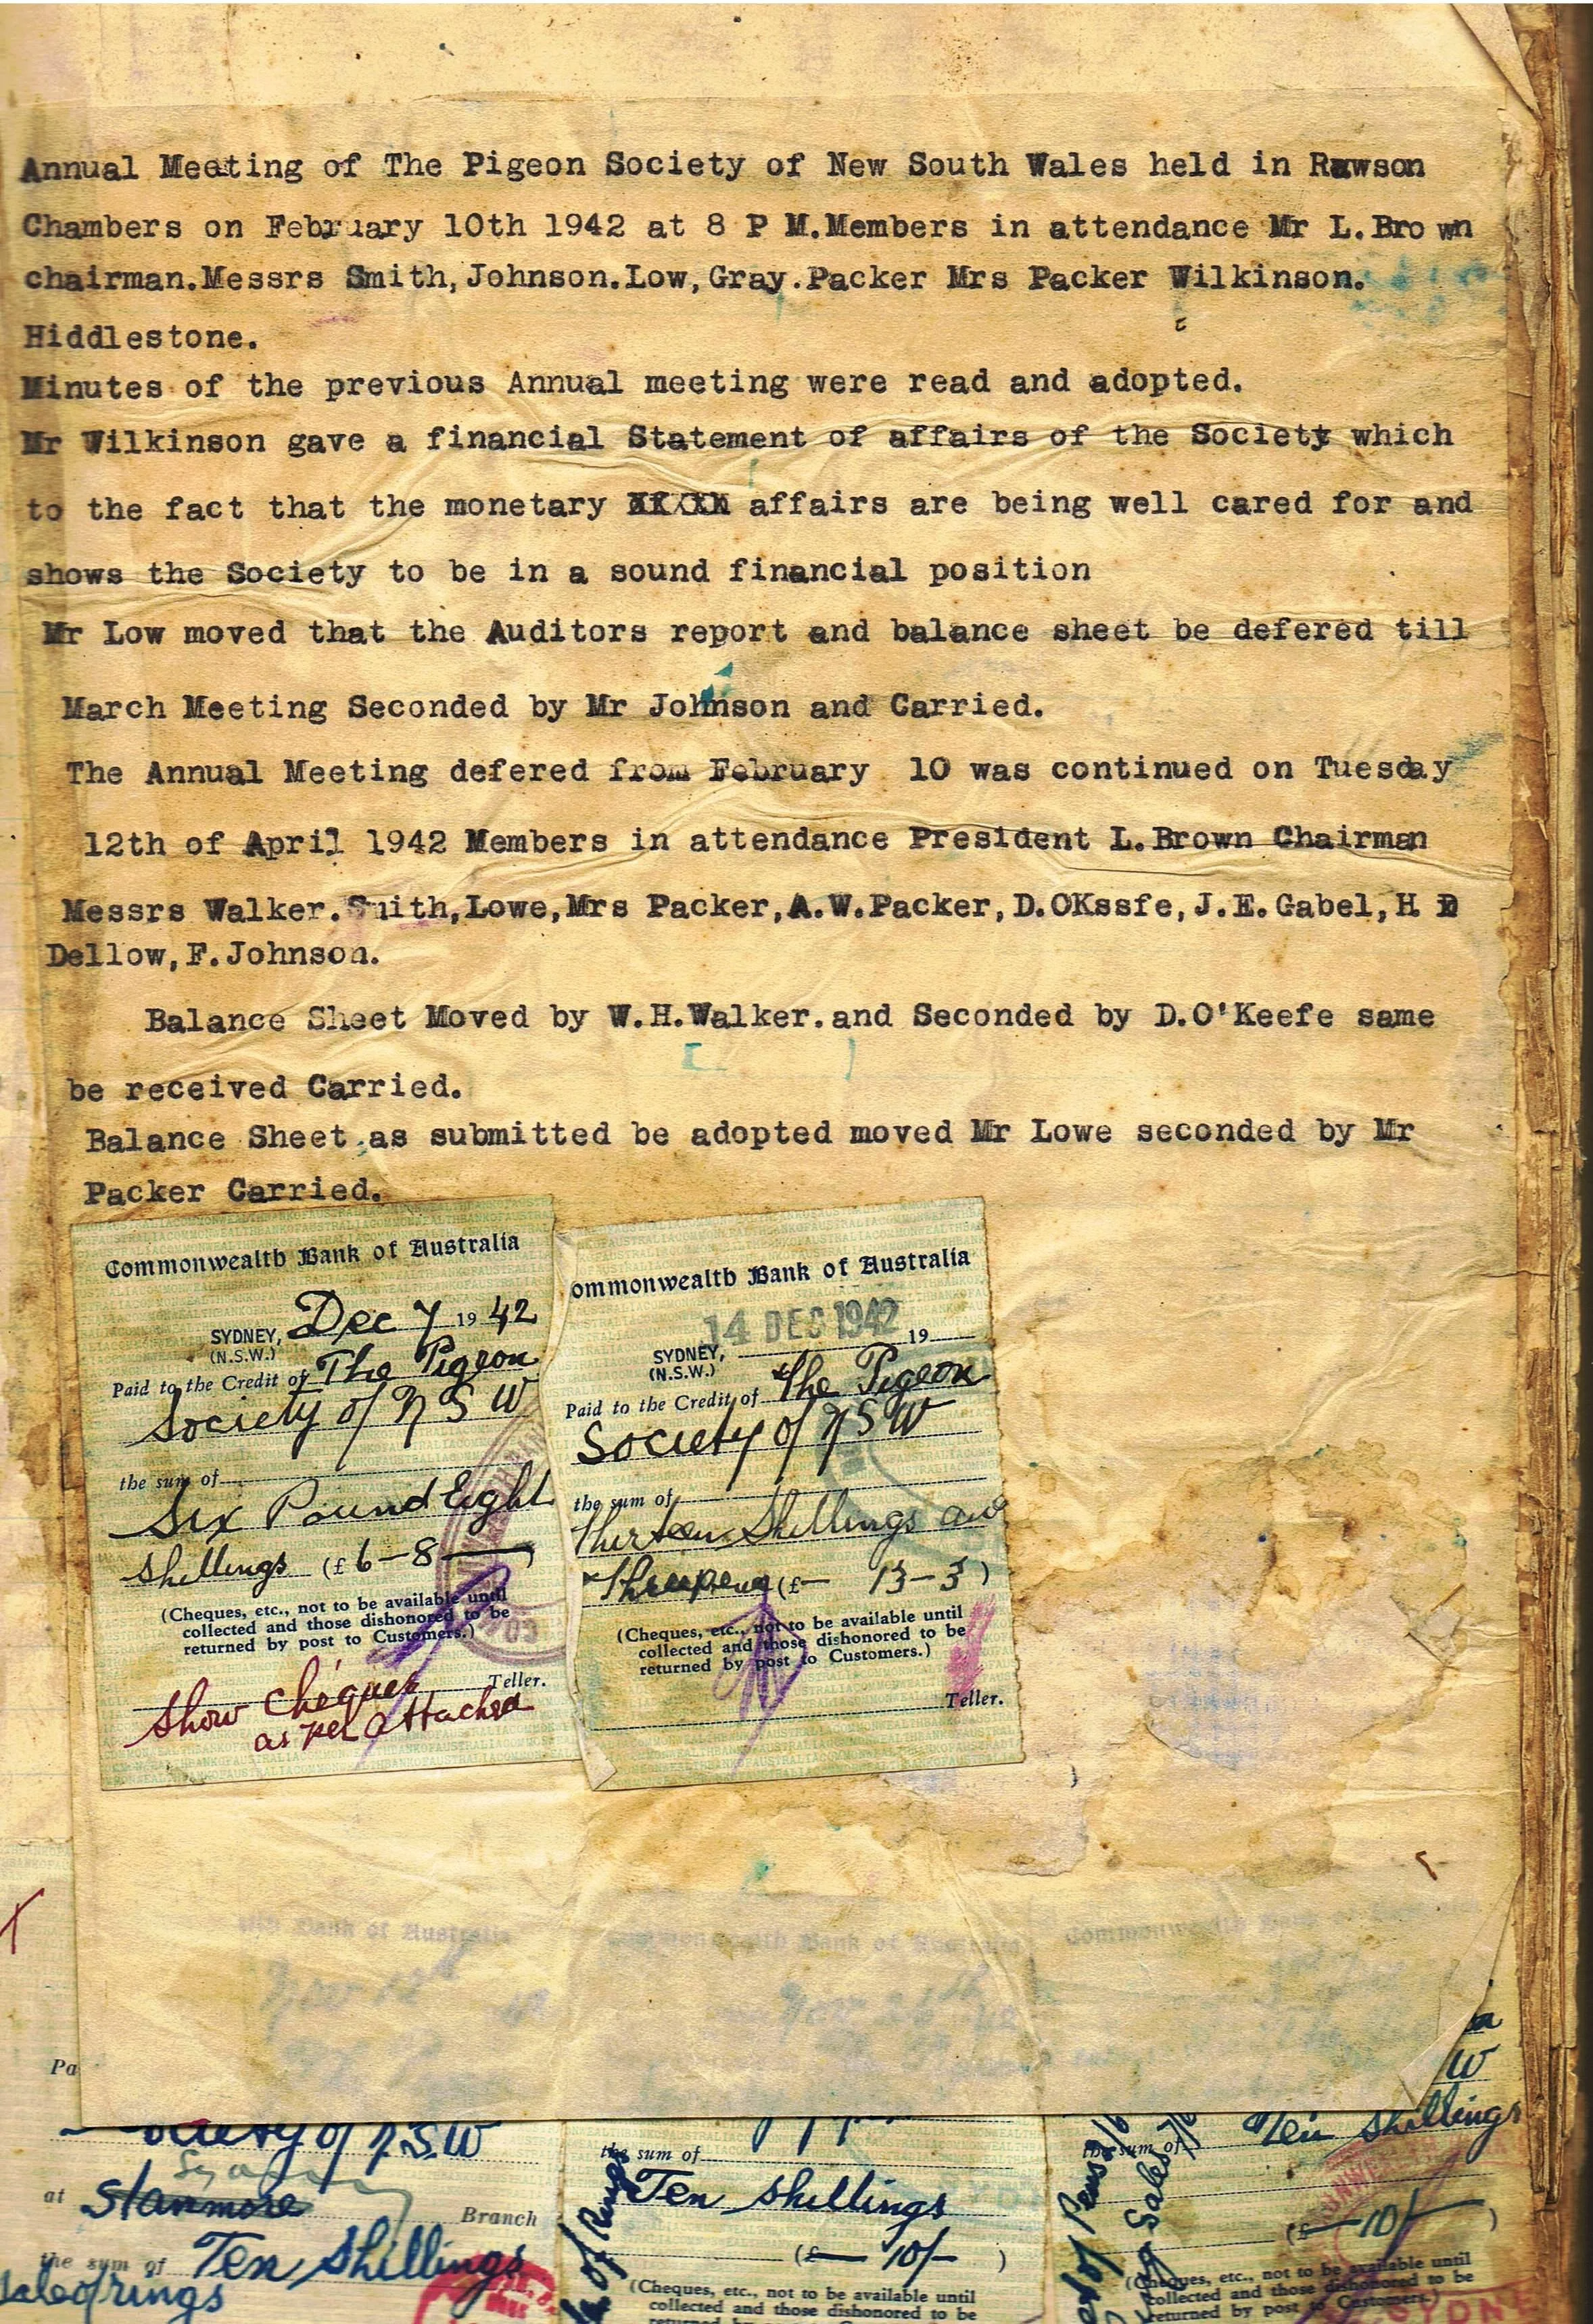 Annual Meeting of The Pigeon Society of New South Wales held in Rawson
Chambers on February 10th 1942 at 8 P M.Members in attendance Mr L.Bro wn
chairman.Messrs Smith,Johnson.Low,Gray.Packer Mrs Packer Wilkinson.
Hiddlestone.
Minutes of the previous Annual meeting were read and adopted.
Mr Wilkinson gave a financial Statement of affairs of the Society which
to the fact that the monetary affairs are being well cared for and
shows the Society to be in a sound financial position
Mr Low moved that the Auditors report and balance sheet be defered till
March Meeting Seconded by Mr Johnson and Carried.
The Annual Meeting defered from February 10 was continued on Tuesday
12th of April 1942 Members in attendance President L.Brown Chairman
Messrs Walker.Smith,Lowe,Mrs Packer,A.W.Packer,D.OKssfe,J.E.Gabel,H D
Dellow,F.Johnson.
Balance Sheet Moved by W.H.Walker.and Seconded by D.O'Keefe same
be received Carried.
Balance Sheet as submitted be adopted moved Mr Lowe seconded by Mr
Packer Carried.
Commonwealth Bank of Australia
SYDNEY, Dec 7 19 42
(N.S.W.)
Paid to the Credit of The Pigeon
Society of N S W
the sum of
Six Pound Eight
Shillings (£ 6-8- )
(Cheques, etc., not to be available until
collected and those dishonored to be
returned by post to Customers.)
Teller.
Show Cheques
as per attached
ommonwealth Bank of Australia
14 DEC 1942
SYDNEY, 19
(N.S.W.)
Paid to the Credit of The Pigeon
Society of N S W
the sum of
Thirteen Shillings and
Threepence (£- 13-3 )
(Cheques, etc., not to be available until
collected and those dishonored to be
returned by post to Customers.)
Teller.
Bank of Australia
Commonwealth Bank of Australia
Commonwealth Bank
Pa
ociety of N.S.W
at Stanmore Branch
the sum of Ten Shillings
sale of rings
the sum of
Ten Shillings
(£- 10/- )
of Rings
(Cheques, etc., not to be available until
collected and those dishonored to be
W
the sum of Ten Shillings
(£- 10/- )
Sales
(Cheques, etc., not to be available until
collected and those dishonored to be
returned by post to Customers.)